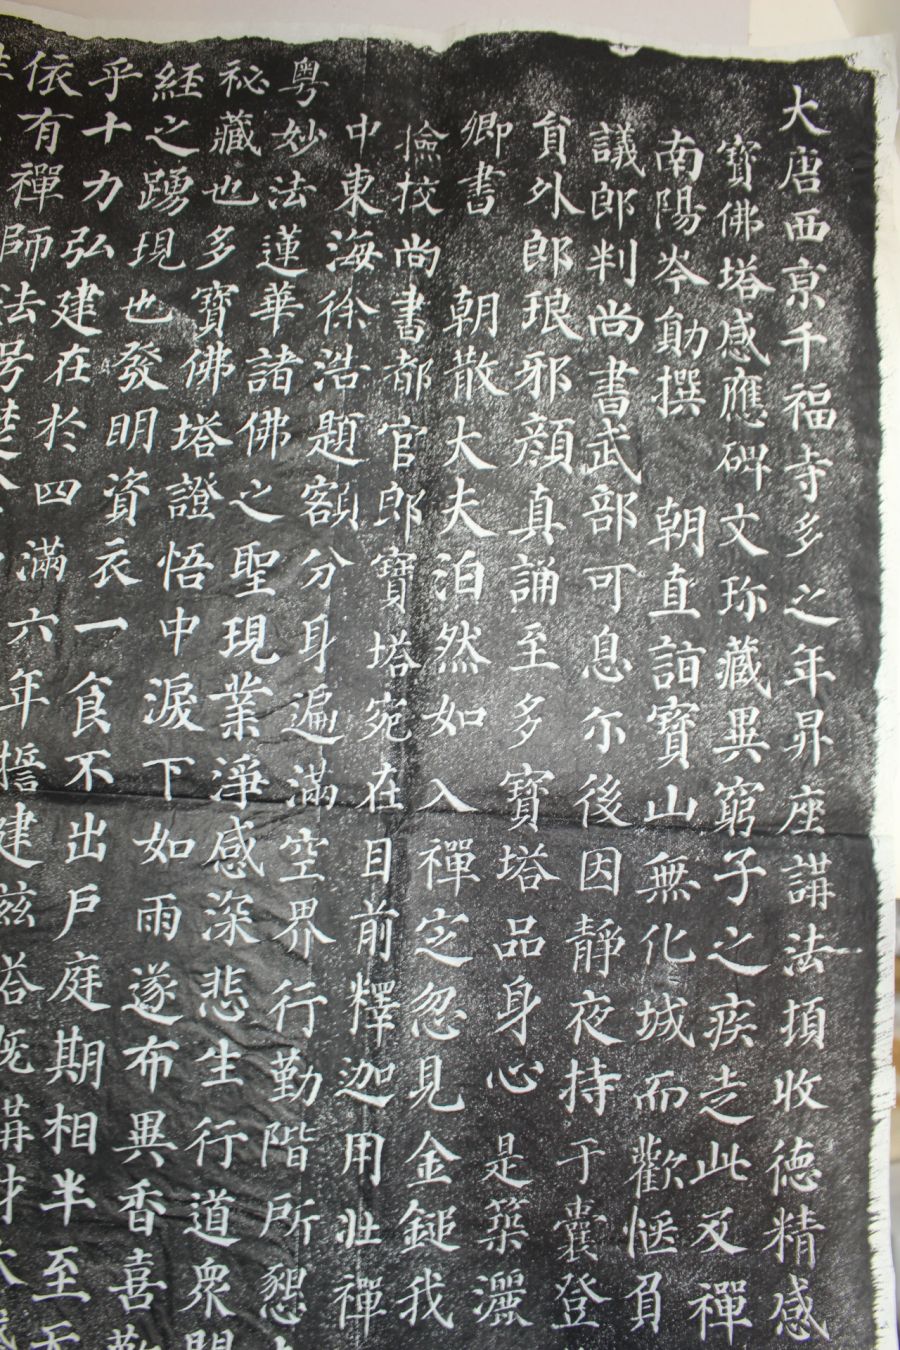 大唐西亰千福寺多之年昇座講法項收德精感
寶佛塔感應碑文珎藏異窮子之疾走此又禪
南陽岑勛撰　朝直詣寶山無化城而歡愜負
議郎判尚書武部可息尒後因靜夜持于囊登
貟外郎琅邪顔真誦至多寶塔品身心　是築灑
卿書　朝散大夫泊然如入禪定忽見金鎚我
撿挍尚書都官郎寶塔宛在目前釋迦用壯禪
中東海徐浩題額分身遍滿空界行勤階所懇
粵妙法蓮華諸佛之聖現業淨感深悲生行道衆
祕藏也多寶佛塔證悟中淚下如雨遂布異香喜
經之踴現也發明資衣一食不出戶庭期相半至无
乎十力弘建在於四滿六年擔建茲塔既講
依有禪師法号楚